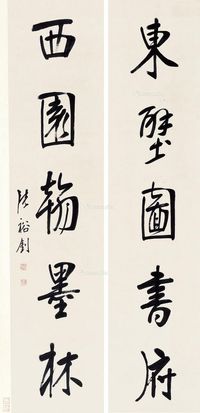 東壁圖書府
西園翰墨林
張裕釗